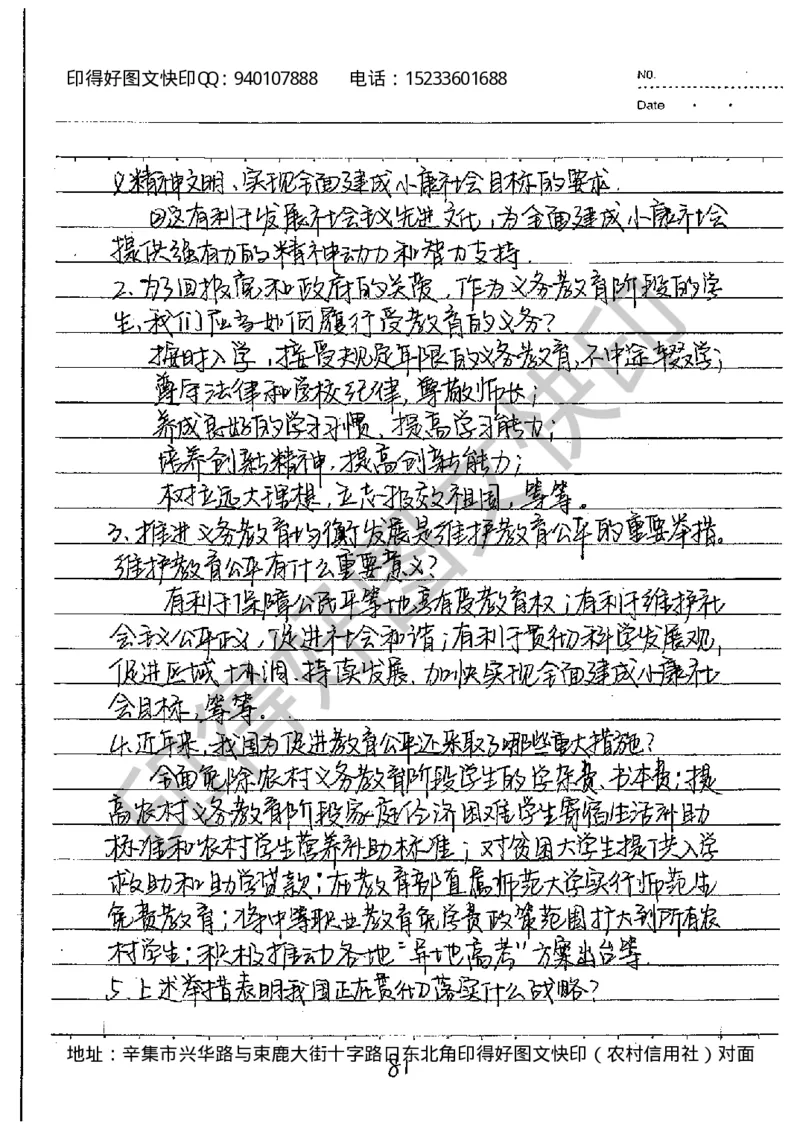 印得好图文快印QQ：940107888 电话：15233601688
NO.
Date
精神文明、实现全面建成小康社会目标的要求.
②这有利于发展社会主义先进文化，为全面建成小康社会
提供强有力的精神动力和智力支持.
2、为了回报党和政府的关爱，作为义务教育阶段的学
生，我们应当如何履行受教育的义务？
按时入学，接受规定年限的义务教育，不中途辍学；
尊守法律和学校纪律，尊敬师长；
养成良好的学习习惯，提高学习能力；
培养创新精神，提高创新能力；
树立远大理想，立志报效祖国，等等。
3、推进义务教育均衡发展是维护教育公平的重要举措。
维护教育公平有什么重要意义？
有利于保障公民平等地享有受教育权；有利于维护社
会主义公平正义，促进社会和谐；有利于贯彻科学发展观，
促进区域协调、持续发展，加快实现全面建成小康社
会目标，等等。
4.近年来，我国为促进教育公平还采取了哪些重大措施？
全面免除农村义务教育阶段学生的学杂费、书本费；提
高农村义务教育阶段家庭经济困难学生寄宿生活补助
标准和农村学生营养补助标准；对贫困大学生提供入学
救助和助学贷款；在教育部直属师范大学实行师范生
免费教育；将中等职业教育免学费政策范围扩大到所有农
村学生；积极推动各地“异地高考”方案出台等.
5.上述举措表明我国正在贯彻落实什么战略？
地址：辛集市兴华路与束鹿大街十字路口东北角印得好图文快印（农村信用社）对面
81
印得好图文快印